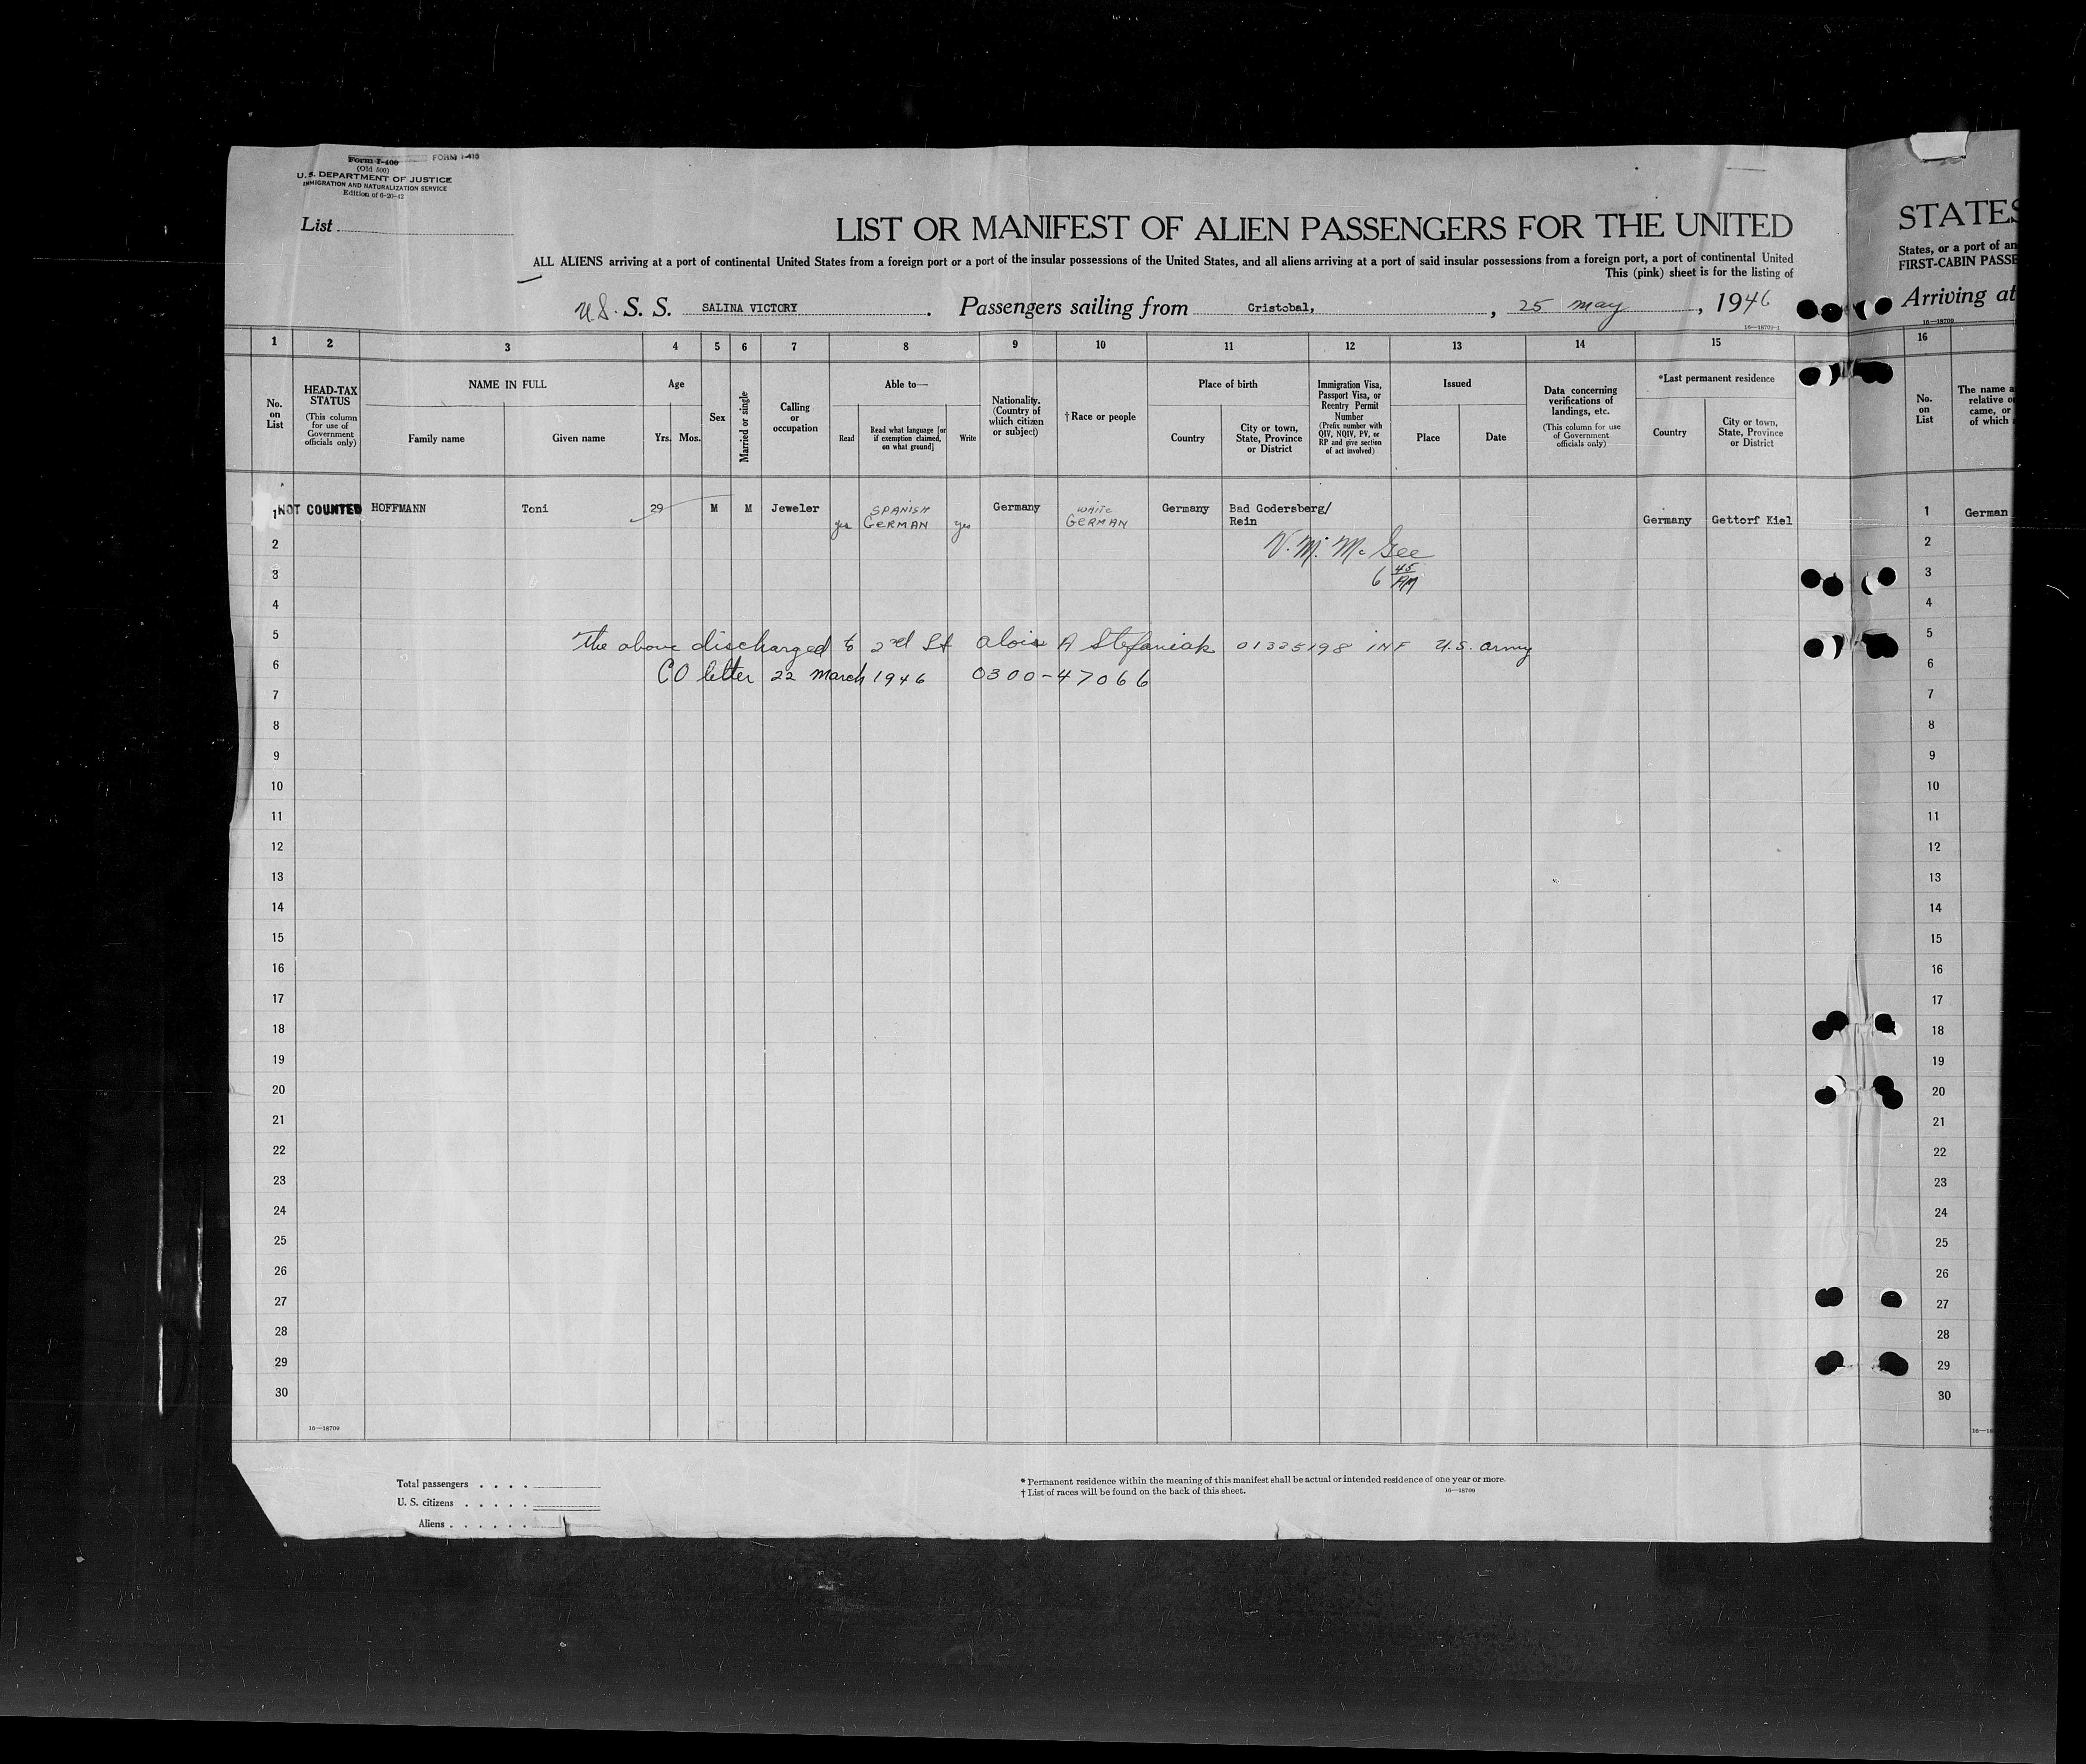 Form I-400 FORM I-415
(Old 500)
U. S. DEPARTMENT OF JUSTICE
IMMIGRATION AND NATURALIZATION SERVICE
Edition of 6-20-42
List
LIST OR MANIFEST OF ALIEN PASSENGERS FOR THE UNITED
ALL ALIENS arriving at a port of continental United States from a foreign port or a port of the insular possessions of the United States, and all aliens arriving at a port of said insular possessions from a foreign port, a port of continental United
This (pink) sheet is for the listing of
U.S. S. S. SALINA VICTORY. Passengers sailing from Cristobal, , 25 May , 1946
16—18709-1
1 2 3 4 5 6 7 8 9 10 11 12 13 14 15
No. on List
HEAD-TAX STATUS
(This column for use of Government officials only)
NAME IN FULL
Family name
Given name
Age
Yrs. Mos.
Sex
Married or single
Calling or occupation
Able to—
Read
Read what language [or if exemption claimed, on what ground]
Write
Nationality. (Country of which citizen or subject)
†Race or people
Place of birth
Country
City or town, State, Province or District
Immigration Visa, Passport Visa, or Reentry Permit Number
(Prefix number with QIV, NQIV, PV, or RP and give section of act involved)
Issued
Place
Date
Data concerning verifications of landings, etc.
(This column for use of Government officials only)
*Last permanent residence
Country
City or town, State, Province or District
1 NOT COUNTED HOFFMANN Toni 29 M M Jeweler yes SPANISH GERMAN yes Germany WHITE GERMAN Germany Bad Godersberg/ Rein Germany Gettorf Kiel
2 V. M. McGee
3 6 45 AM
4
5 The above discharged to 2nd Lt Alois A Stefaniak 01325198 INF U.S. Army
6 CO letter 22 March 1946 0300-47066
7
8
9
10
11
12
13
14
15
16
17
18
19
20
21
22
23
24
25
26
27
28
29
30
16—18709
Total passengers
U. S. citizens
Aliens
* Permanent residence within the meaning of this manifest shall be actual or intended residence of one year or more.
† List of races will be found on the back of this sheet. 16—18709
STATES
States, or a port of an
FIRST-CABIN PASSE
Arriving at
16—18709
16
No. on List
The name a
relative o
came, or
of which
1 German
2
3
4
5
6
7
8
9
10
11
12
13
14
15
16
17
18
19
20
21
22
23
24
25
26
27
28
29
30
16—18